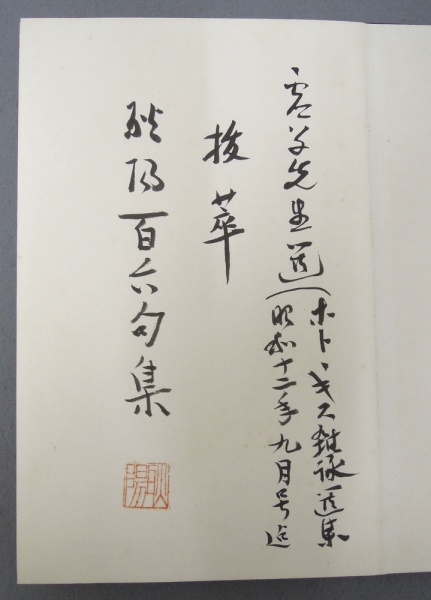 虚子先生選(ホトヽキス雑詠選集
昭和十二年九月号迄
抜萃
耿陽百六句集
耿陽